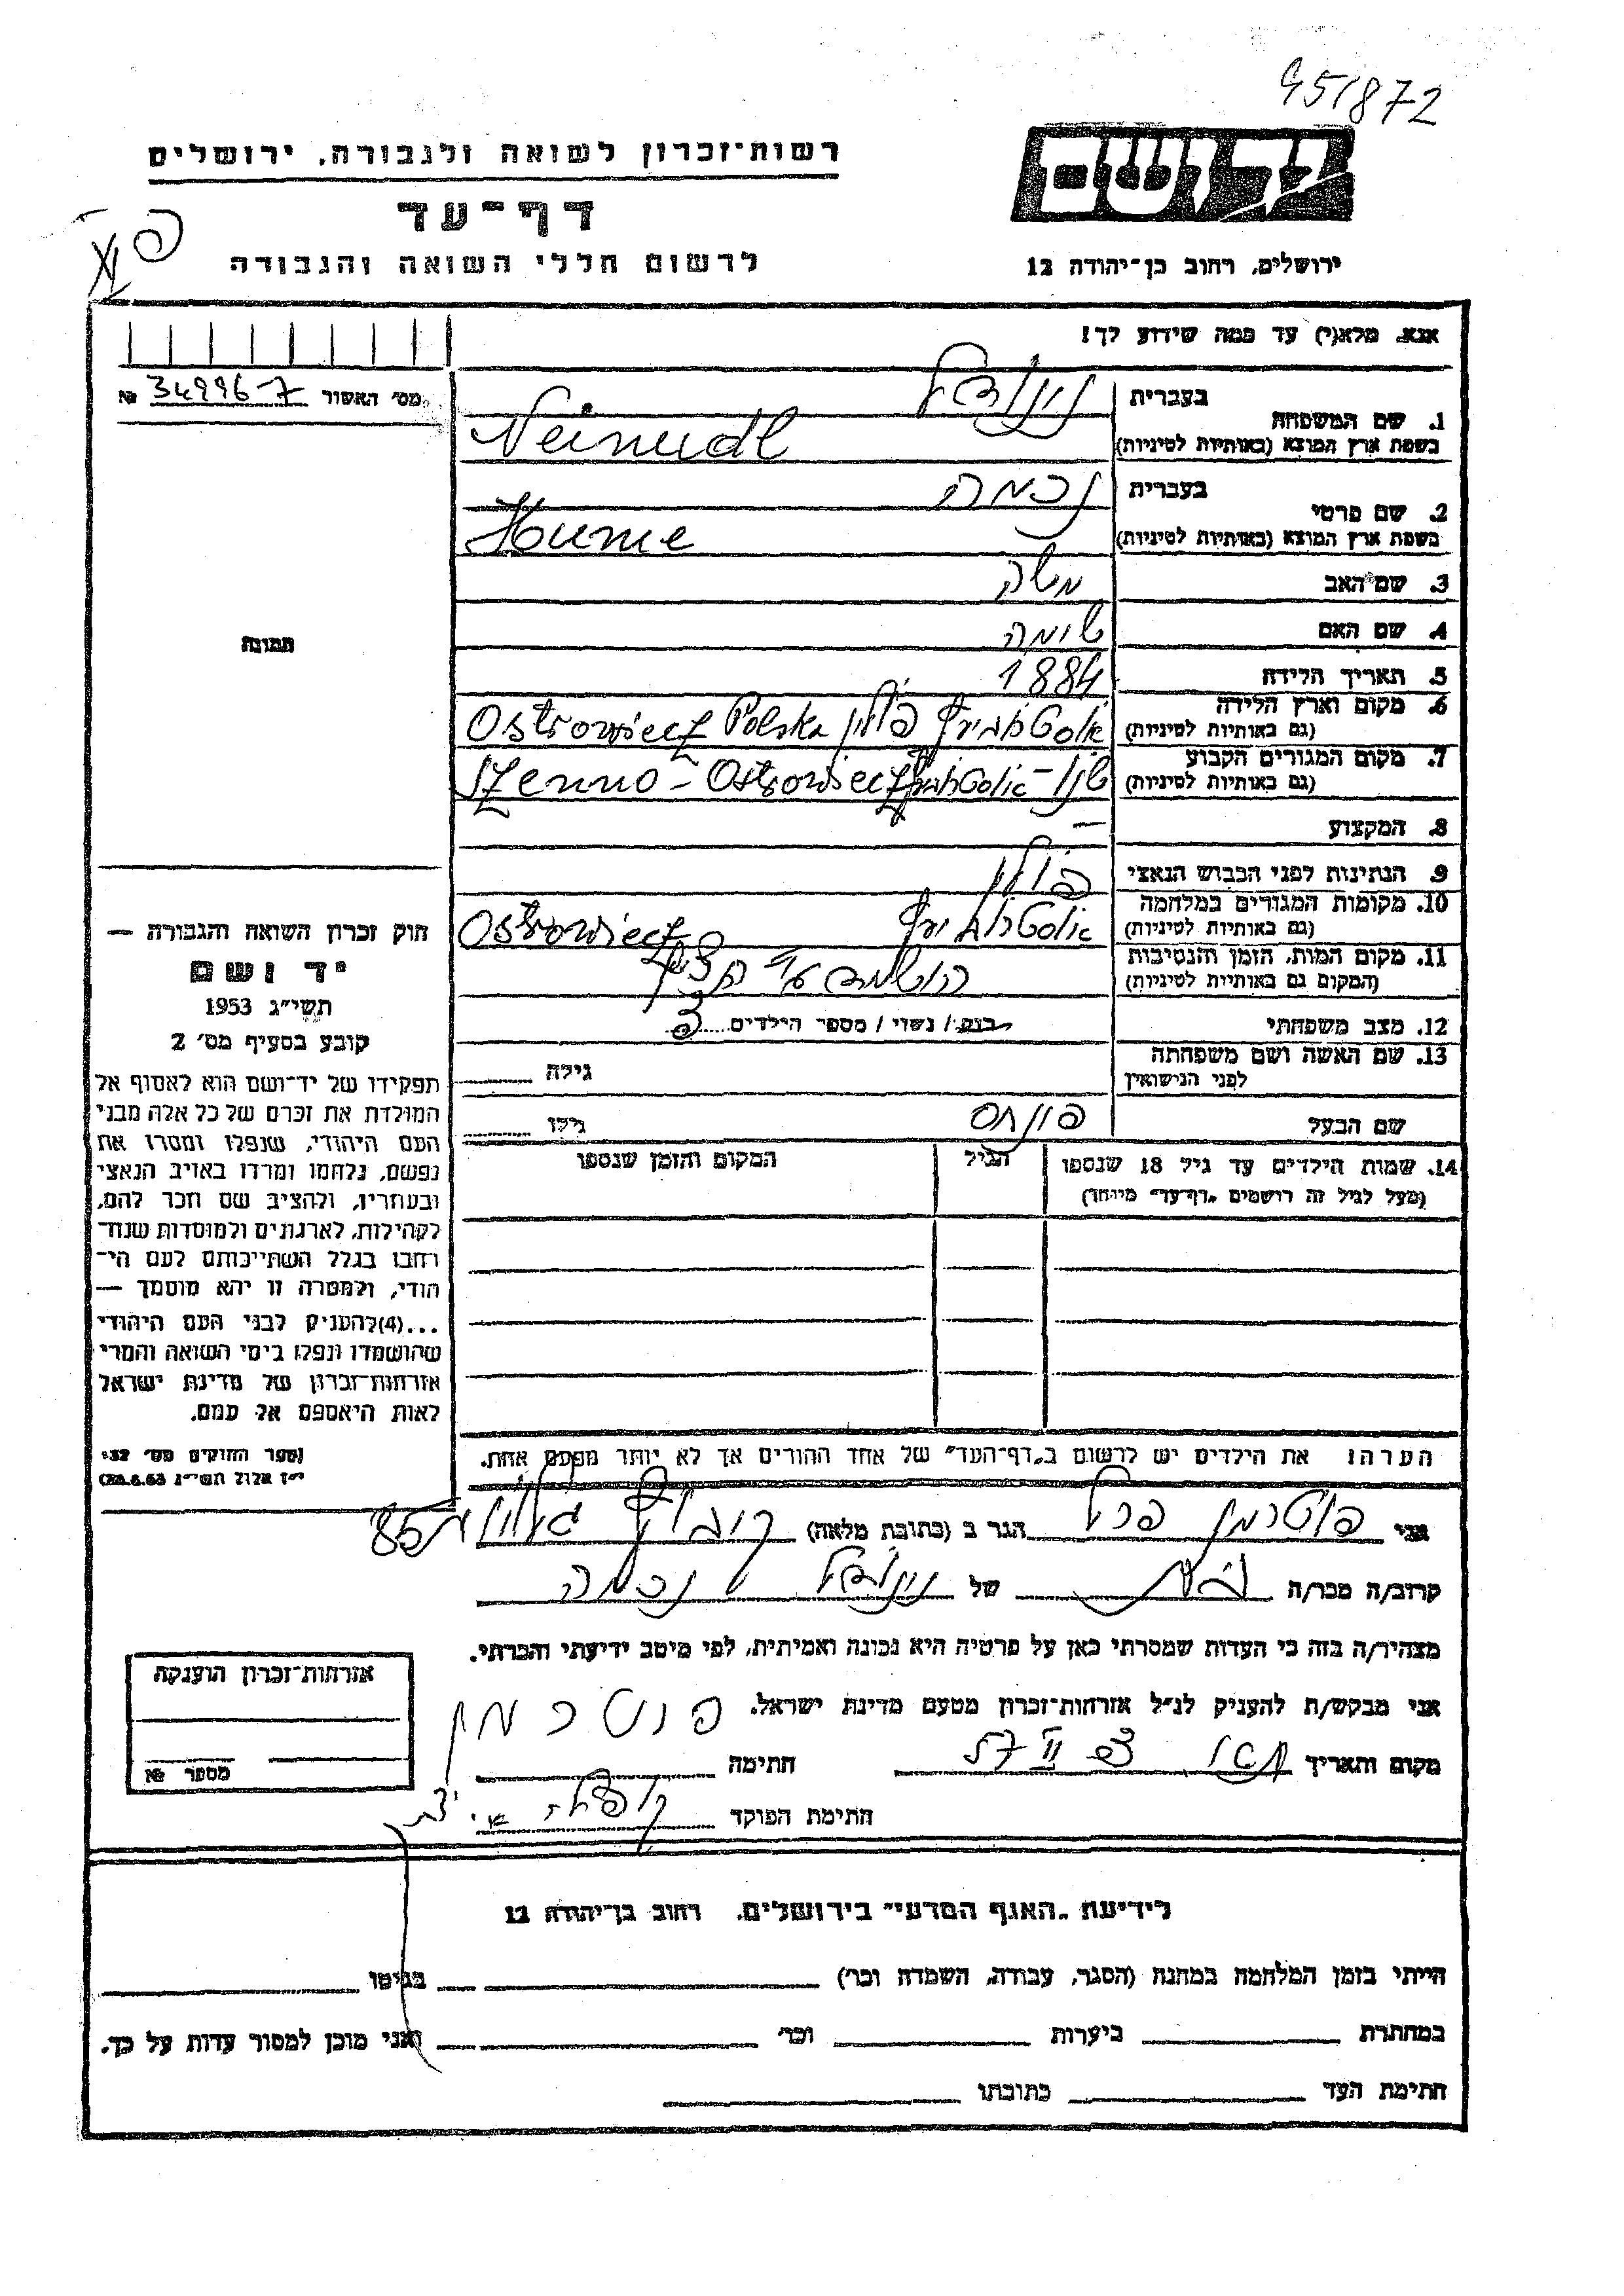 951872
רשות־זכרון לשואה ולגבורה, ירושלים
יד ושם
דף־עד
לרשום חללי השואה והגבורה
ירושלים, רחוב בן־יהודה 12
אנא, מלא(י) עד כמה שידוע לך!
מס׳ האשור 349967 №
בעברית
1. שם המשפחה
בשפת ארץ המוצא (באותיות לטיניות) Neinudl
בעברית נכמה
2. שם פרטי
בשפת ארץ המוצא (באותיות לטיניות) Hume
3. שם האב משה
4. שם האם שומה
תמונה
5. תאריך הלידה 1884
6. מקום וארץ הלידה פולין Ostrowiecz Polska
(גם באותיות לטיניות)
7. מקום המגורים הקבוע Szenno - Ostrowiecz
(גם באותיות לטיניות)
8. המקצוע —
9. הנתינות לפני הכבוש הנאצי פולין
10. מקומות המגורים במלחמה Ostrowiecz
(גם באותיות לטיניות)
11. מקום המות, הזמן והנסיבות הושמדה ע״י
(המקום גם באותיות לטיניות)
12. מצב משפחתי רווק / נשוי / מספר הילדים 3
13. שם האשה ושם משפחתה גילה
לפני הנישואין
שם הבעל פינחס גילו
14. שמות הילדים עד גיל 18 שנספו הגיל המקום והזמן שנספו
(מעל לגיל זה רושמים „דף־עד״ מיוחד)
הערה: את הילדים יש לרשום ב„דף־העד״ של אחד ההורים אך לא יותר מפעם אחת.
חוק זכרון השואה והגבורה —
יד ושם
תשי״ג 1953
קובע בסעיף מס׳ 2
תפקידו של יד־ושם הוא לאסוף אל
המולדת את זכרם של כל אלה מבני
העם היהודי, שנפלו ומסרו את
נפשם, נלחמו ומרדו באויב הנאצי
ובעוזריו, ולהציב שם וזכר להם,
לקהילות, לארגונים ולמוסדות שנח־
רבו בגלל השתייכותם לעם הי־
הודי, ולמטרה זו יהא מוסמך —
...(4)להעניק לבני העם היהודי
שהושמדו ונפלו בימי השואה והמרי
אזרחות־זכרון של מדינת ישראל
לאות היאספם אל עמם.
(ספר החוקים מס׳ 132
י״ז אלול תשי״ג 28.8.53)
אני פוטרמן פרל הגר ב (כתובת מלאה) 85
קרוב/ה מכר/ה בת של נכמה
מצהיר/ה בזה כי העדות שמסרתי כאן על פרטיה היא נכונה ואמיתית, לפי מיטב ידיעתי והכרתי.
אני מבקש/ת להעניק לנ״ל אזרחות־זכרון מטעם מדינת ישראל.
מקום ותאריך 57 חתימה פוטרמן
חתימת הפוקד
אזרחות־זכרון הוענקה
מספר №
לידיעת „האגף המדעי״ בירושלים, רחוב בן־יהודה 12
הייתי בזמן המלחמה במחנה (הסגר, עבודה, השמדה וכר׳) בגיטו
במחתרת ביערות וכר׳ ואני מוכן למסור עדות על כך.
חתימת העד כתובתו